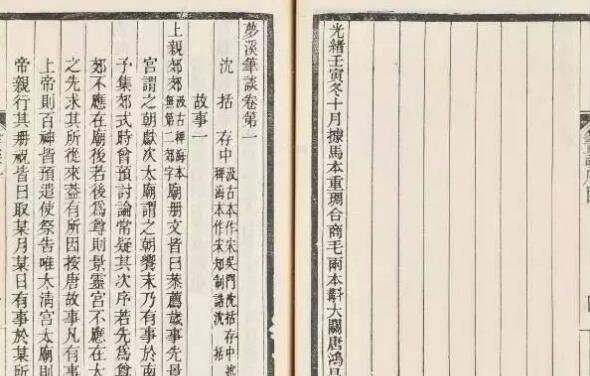 光緒壬寅冬十月據馬本重琱合商毛兩本斠大關唐鴻
夢溪筆談卷第一
沈括存中汲古本作宋吳門沈括存中
稗海本作宋知制誥沈括
故事一
上親郊郊汲古稗海本
無第二郊字廟册文皆曰恭薦歲事先景
宮謂之朝獻次太廟謂之朝饗末乃有事於南
子集郊式時曾預討論常疑其次序若先為尊
郊不應在廟後若後為尊則景靈宮不應在太
之先求其所從來蓋有所因按唐故事凡有事
上帝則百神皆預遣使祭告唯太清宮太廟則
帝親行其册祝皆曰取某月某日有事於某所